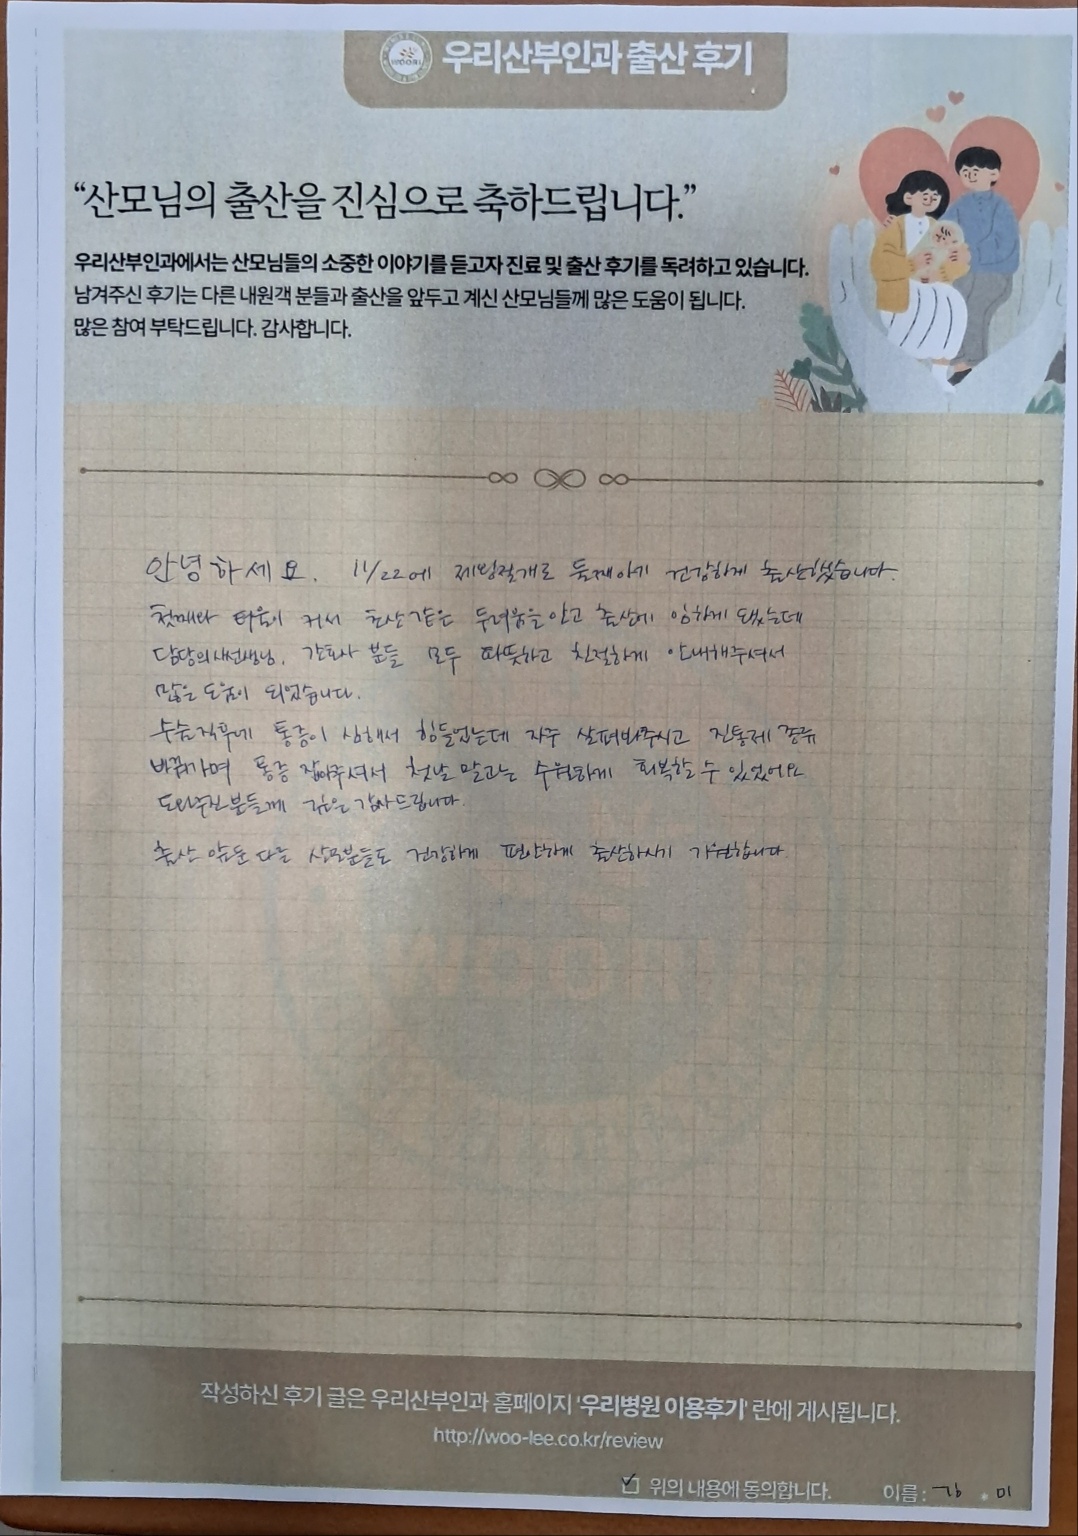 WOORI
우리산부인과 출산 후기
“산모님의 출산을 진심으로 축하드립니다.”
우리산부인과에서는 산모님들의 소중한 이야기를 듣고자 진료 및 출산 후기를 독려하고 있습니다.
남겨주신 후기는 다른 내원객 분들과 출산을 앞두고 계신 산모님들께 많은 도움이 됩니다.
많은 참여 부탁드립니다. 감사합니다.
안녕하세요. 11/22에 제왕절개로 둘째아기 건강하게 출산했습니다.
첫째와 터울이 커서 초산같은 두려움을 안고 출산에 임하게 됐는데
담당의사선생님, 간호사 분들 모두 따뜻하고 친절하게 안내해주셔서
많은 도움이 되었습니다.
수술직후에 통증이 심해서 힘들었는데 자주 살펴봐주시고 진통제 종류
바꿔가며 통증 잡아주셔서 첫날 말고는 수월하게 회복할 수 있었어요
도와주신분들께 깊은 감사드립니다.
출산 앞둔 다른 산모분들도 건강하게 편안하게 출산하시기 기원합니다.
작성하신 후기 글은 우리산부인과 홈페이지 '우리병원 이용후기' 란에 게시됩니다.
http://woo-lee.co.kr/review
위의 내용에 동의합니다. 이름 : 미